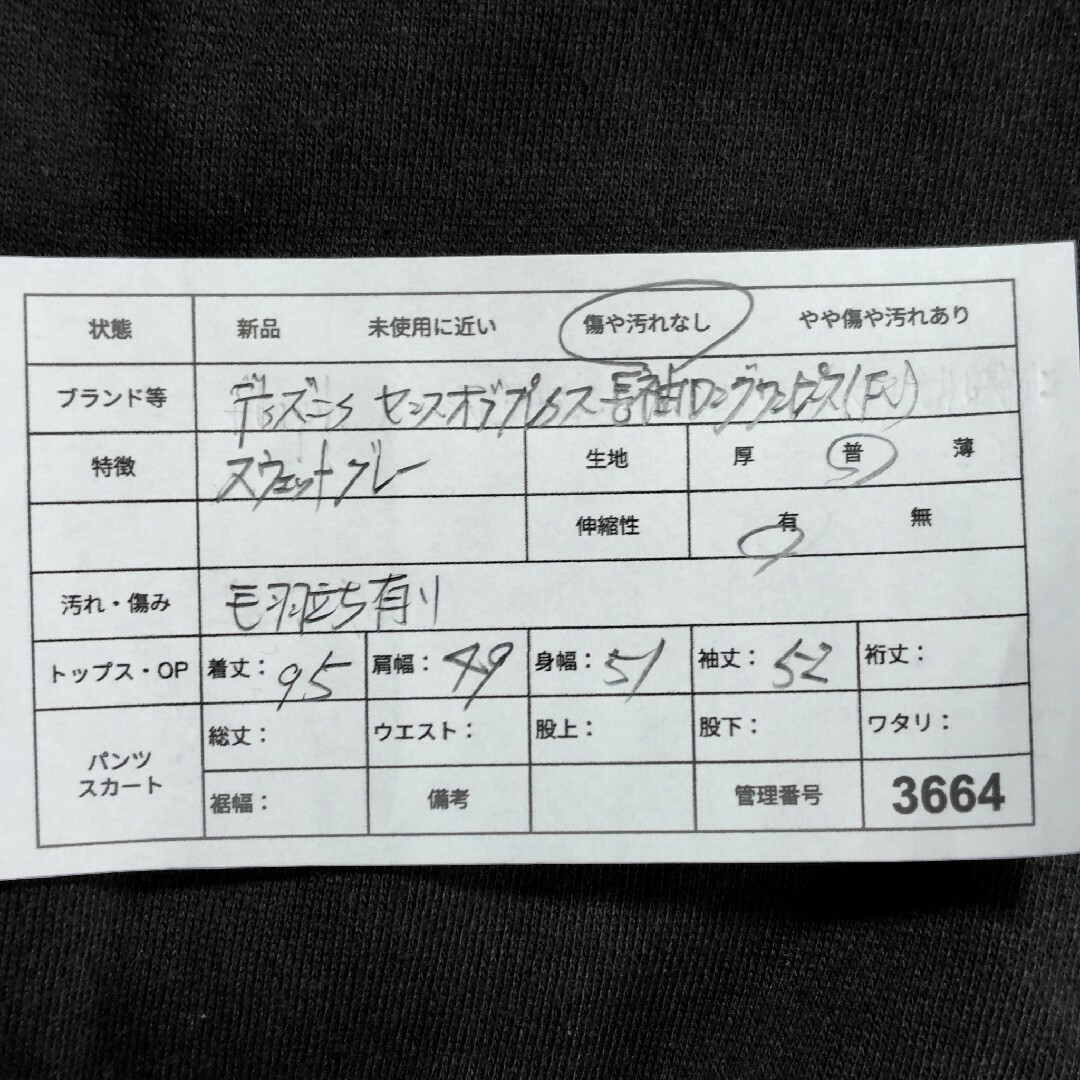 状態 新品 未使用に近い 傷や汚れなし やや傷や汚れあり
ブランド等 ディズニー センスオブプレイス 長袖ロングワンピース(F)
特徴 スウェット グレー 生地 厚 普 薄
伸縮性 有 無
汚れ・傷み 毛羽立ち有り
トップス・OP 着丈: 95 肩幅: 49 身幅: 51 袖丈: 52 裄丈:
パンツ スカート 総丈: ウエスト: 股上: 股下: ワタリ:
裾幅: 備考 管理番号 3664